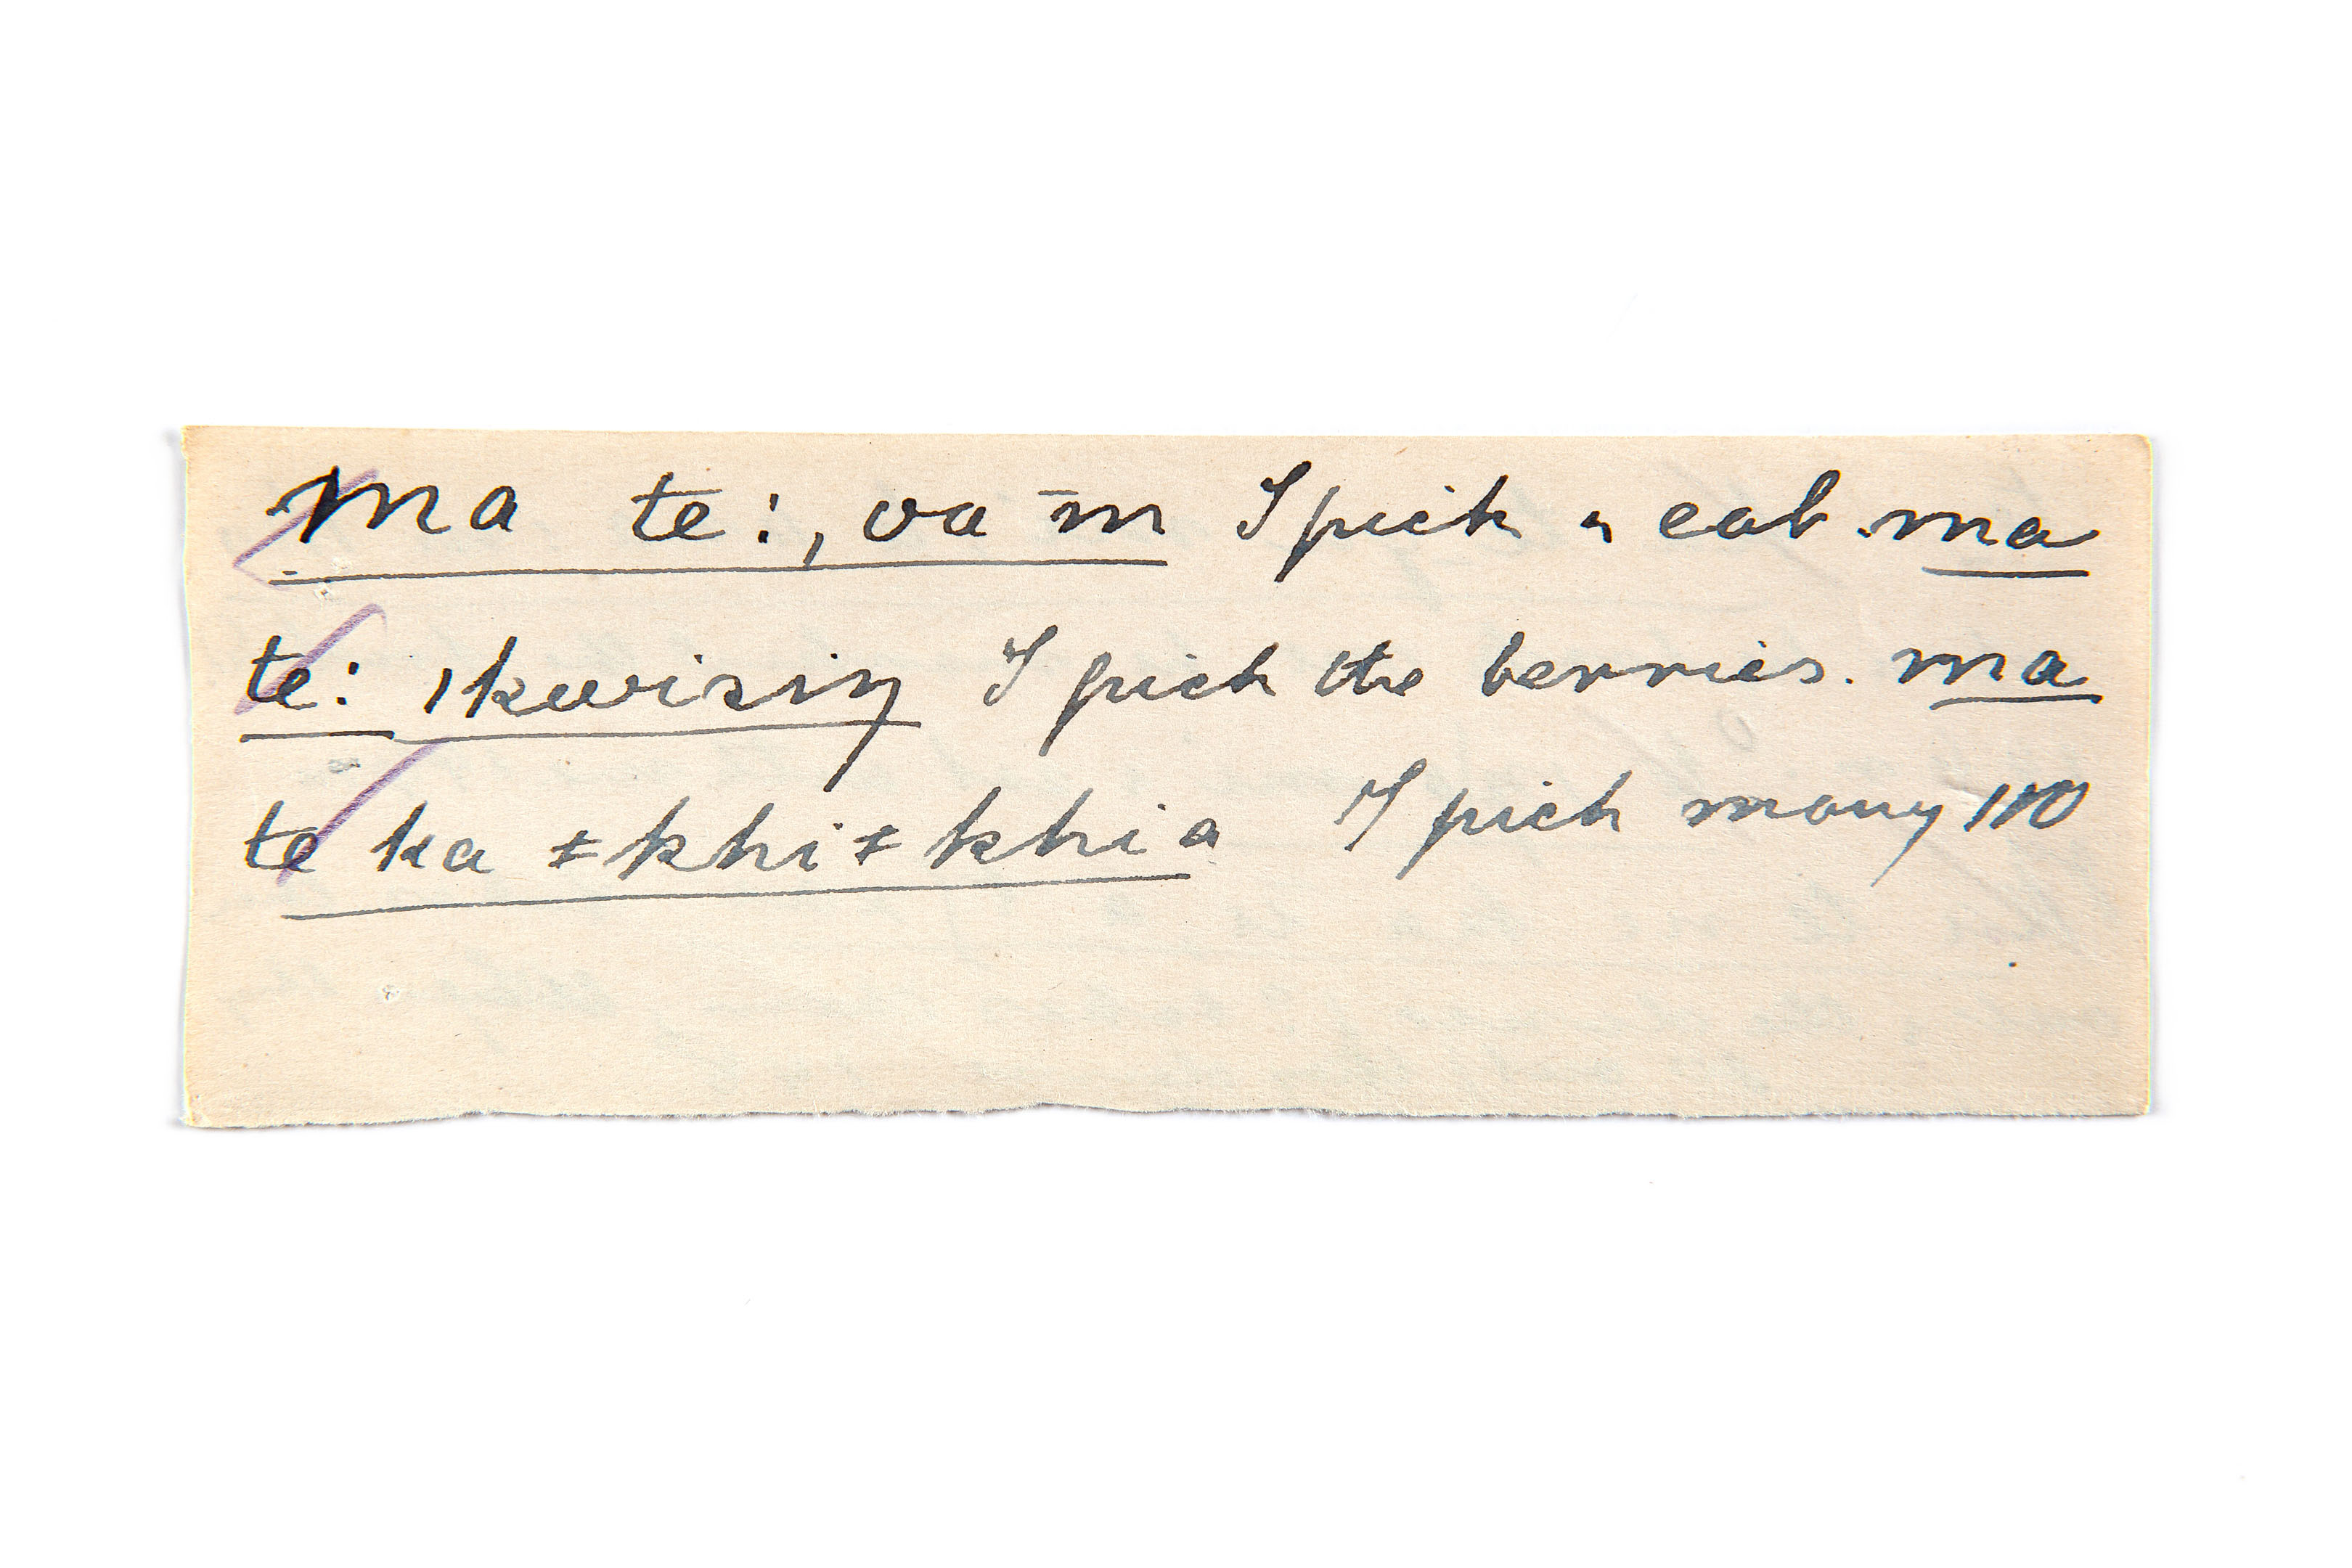 ma te:, oa m̄ I pick a cob. ma
te: ıkwisiŋ I pick the berries. ma
te ka ǂkhiǂkhia I pick many